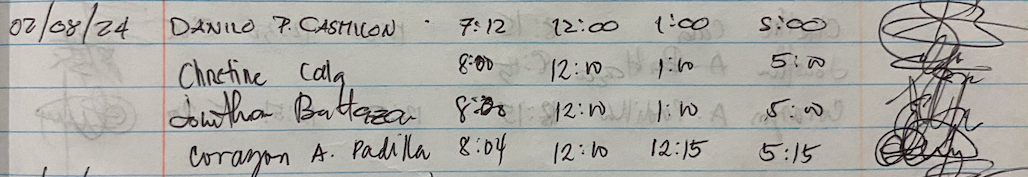 02/08/24 DANILO P. CASTILLON 7:12 12:00 1:00 5:00
Christine Cala 8:00 12:10 1:10 5:10
Jonathan 8:00 12:10 1:10 5:00
Corazon A. Padilla 8:04 12:10 12:15 5:15